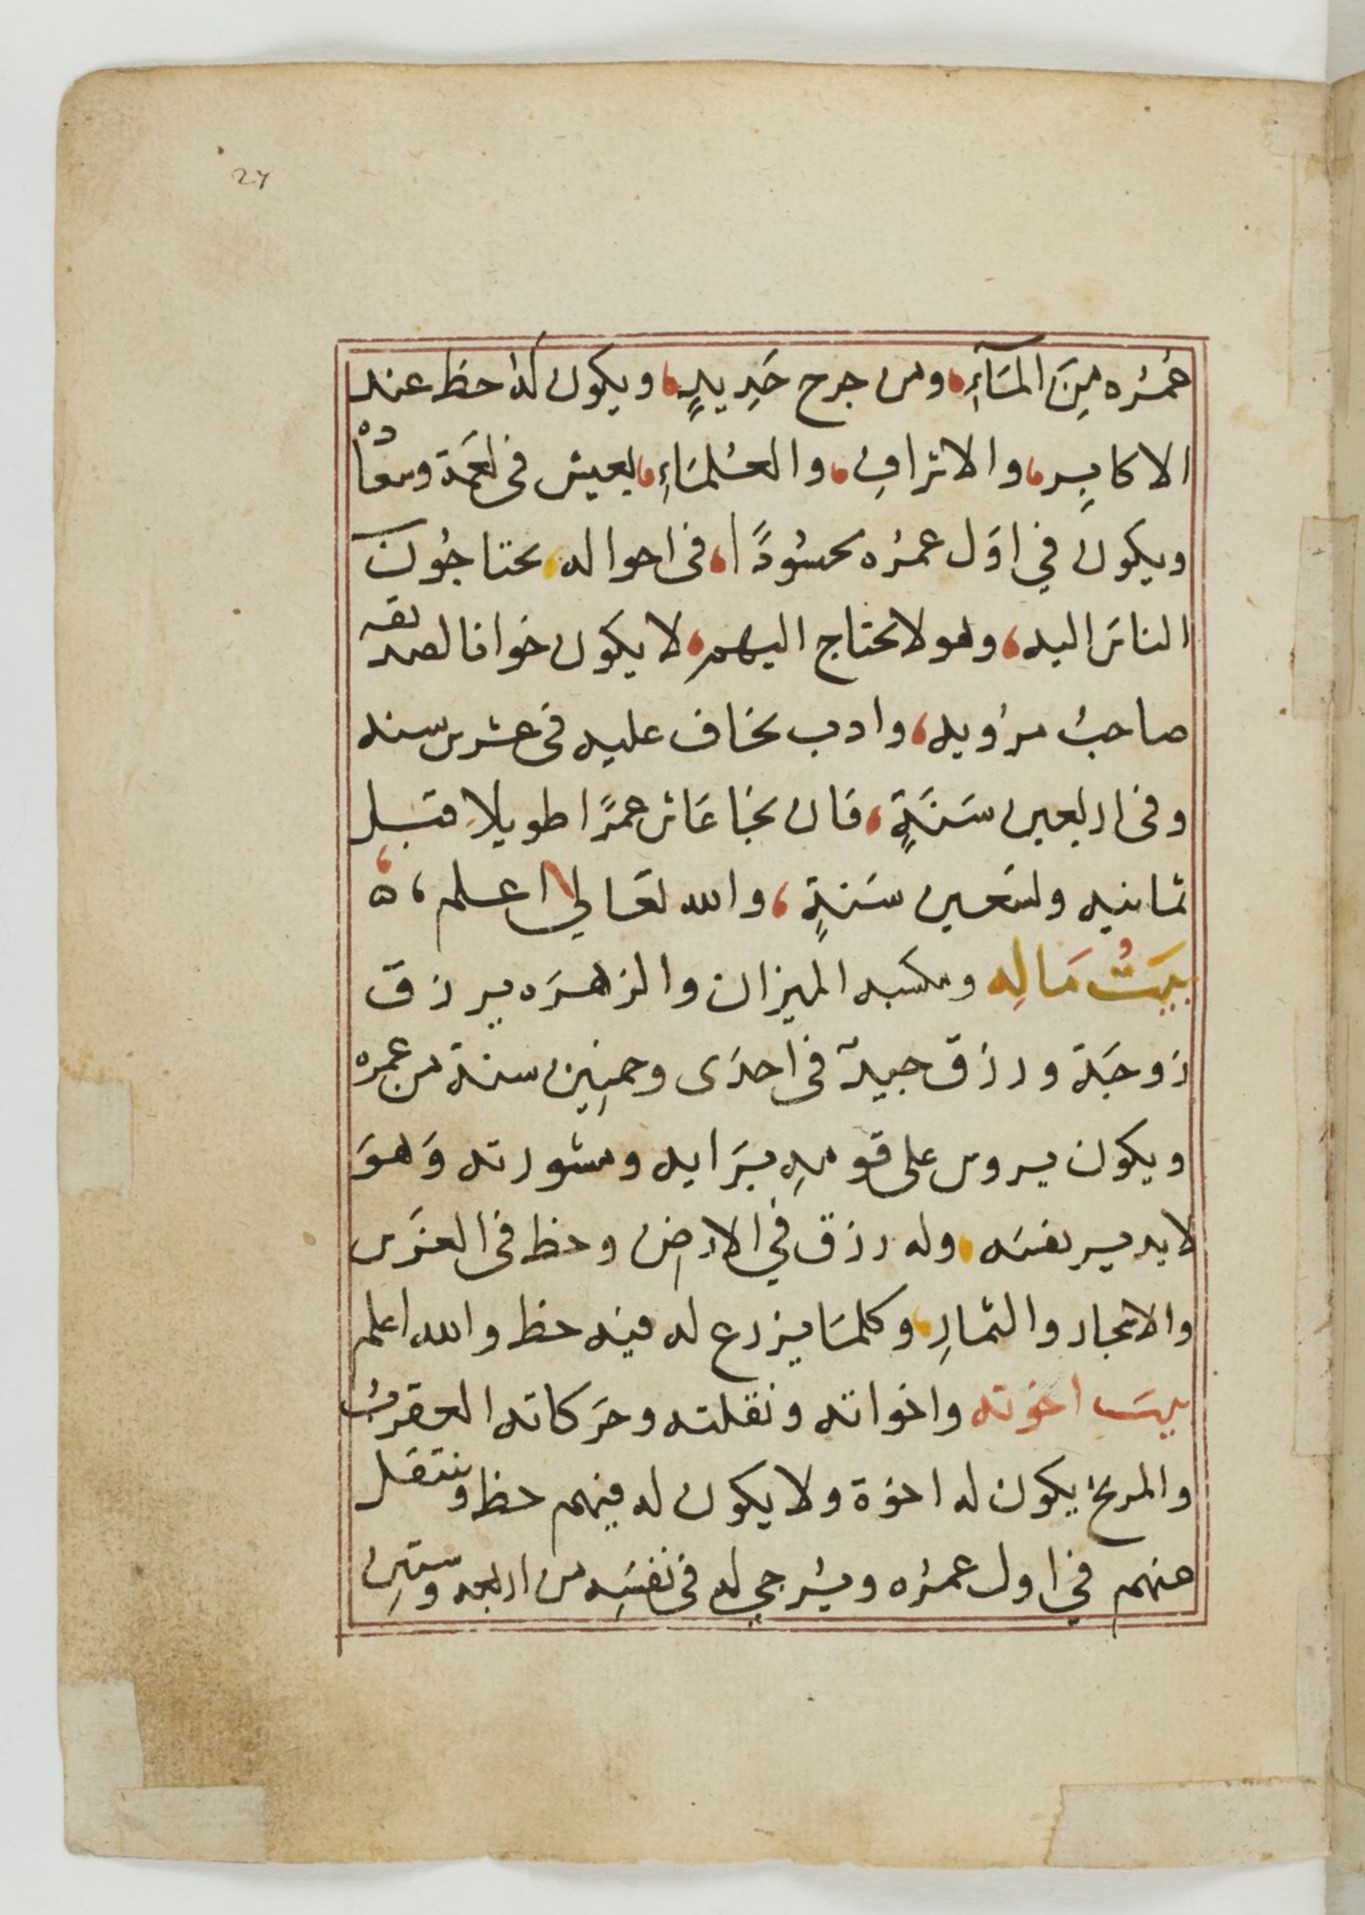 27
عمُره مِنَ المَآءِ، ومن جرح حَدِيدٍ، ويكون له حظ عند
الاكابِر، والاشرافِ، والعُلمَاءِ، يعيش فى نعمَة وسعاده
ويكون في اوَل عمرُه محسُودًا، فى احواله، يحتاجُونَ
الناسَ اليه، وهو لا يحتاج اليهم، لا يكون خوانا لصديقه
صاحبُ مرُويه، وادب يخاف عليه فى عشرين سنه
وفى اربعين سَنَةٍ، فان نجَا عَاش عمرًا طويلا قبل
ثمانيه وتسَعين سَنةٍ، والله تعَالى اعلم، ه
بيَتُ مَالِه ومكسبه الميزان والزهرَه يرزق
زوجَة ورزق جيدّ فى احدَى وخمسِين سنة من عمره
ويكون يروس على قومهِ برَايه ومشورته وَهوَ
لا يدبر نفسَه، وله رزق في الارض وحظ فى الغرَس
والاشجار والثمارِ، وكلمَا يزرع له فيه حظ والله اعلم
بيتَ اخوته واخواته ونقلته وحَركاته العقربُ
والمريخ يكون له اخوة ولا يكون له فيهم حظ وينتقل
عنهم في اول عمرُه ويُرجي له فى نفسَِه من اربعه وستيِن